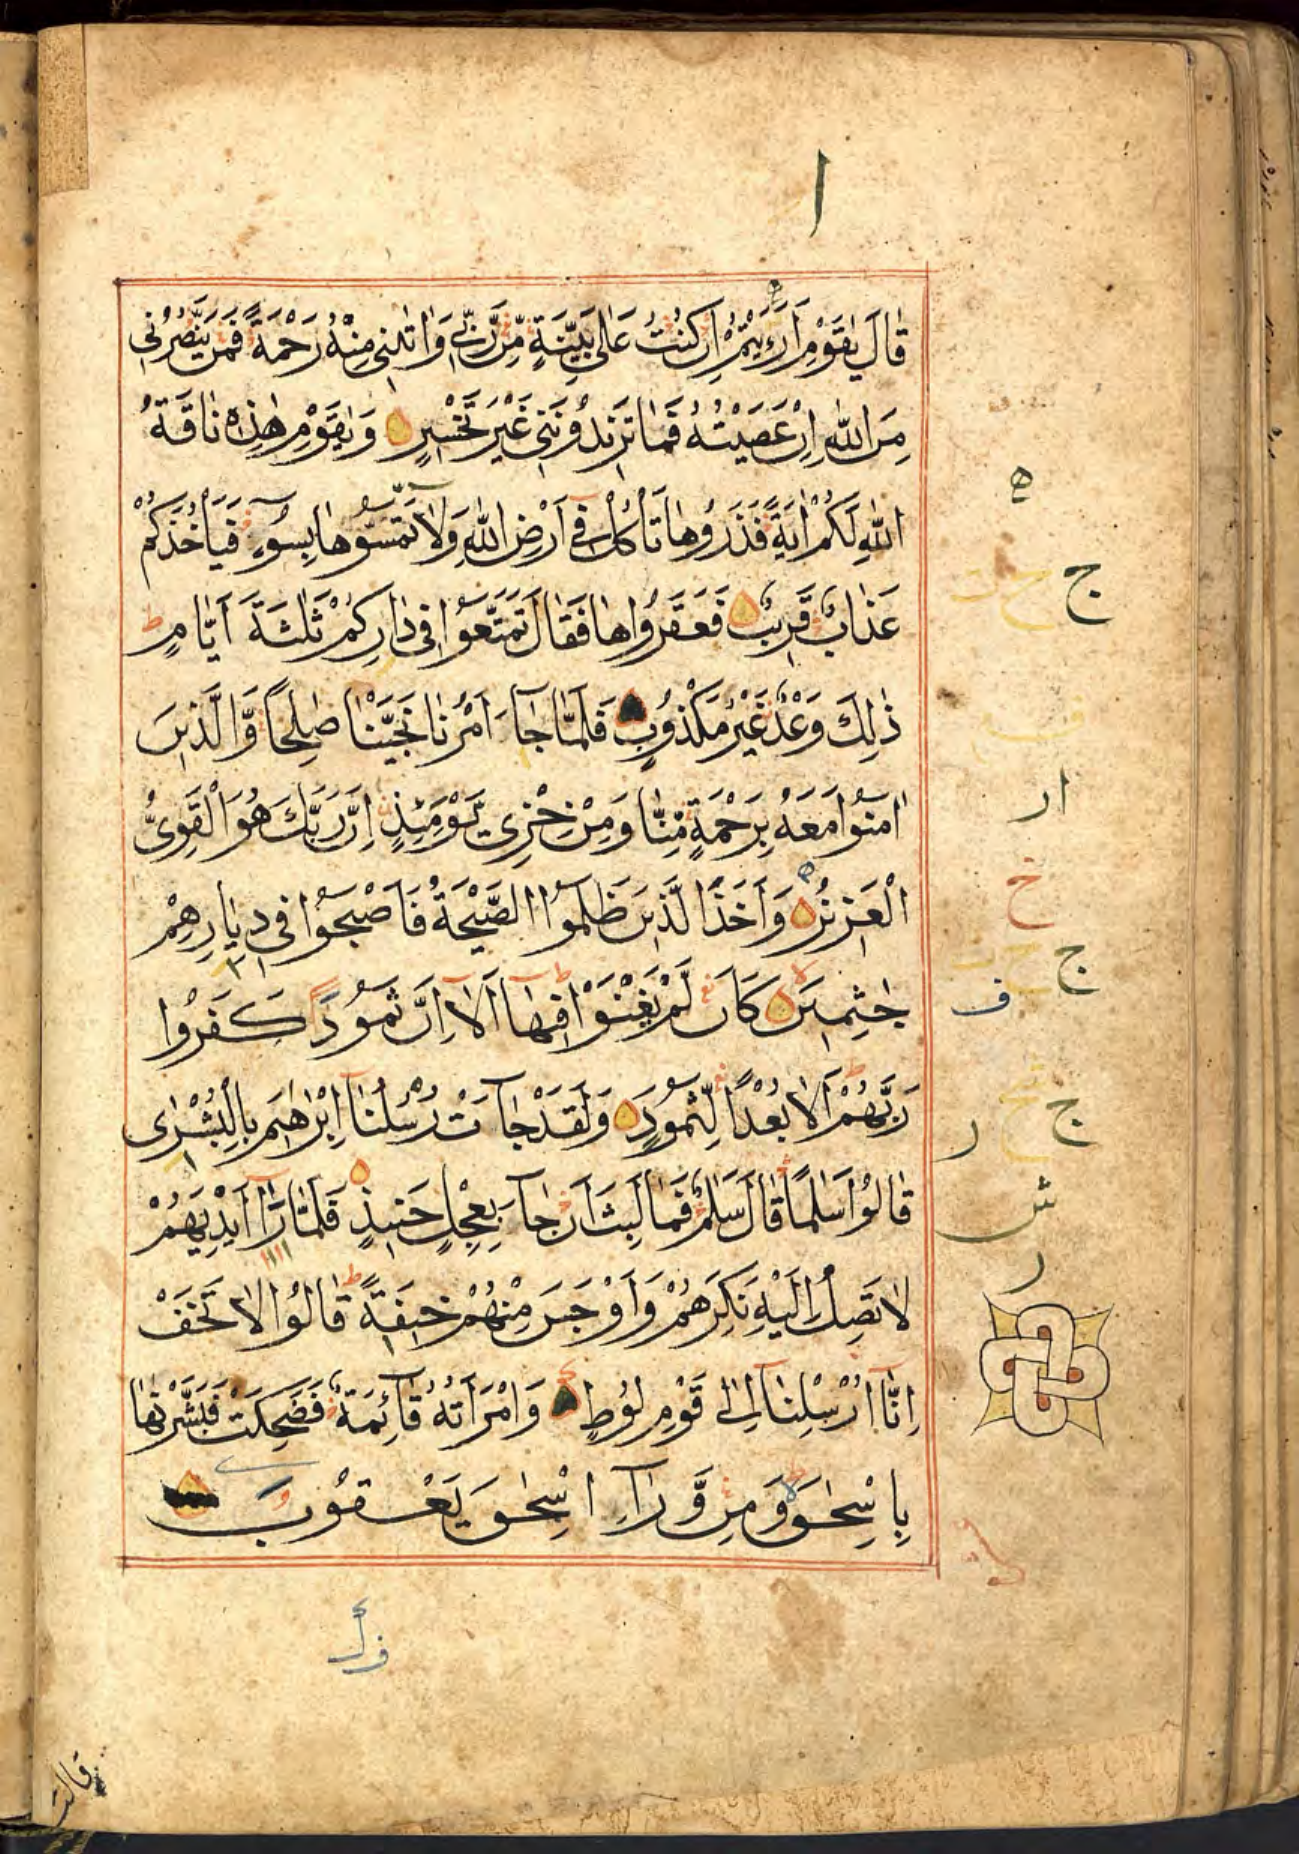 ا
قَالَ يٰقَوْمِ اَرَءَيْتُمْ اِنْ كُنْتُ عَلٰى بَيِّنَةٍ مِّنْ رَّبِّي وَاٰتٰىنِي مِنْهُ رَحْمَةً فَمَنْ يَّنْصُرُنِي
مِنَ اللّٰهِ اِنْ عَصَيْتُهُ فَمَا تَزِيْدُوْنَنِي غَيْرَ تَخْسِيْرٍ وَيٰقَوْمِ هٰذِهِ نَاقَةُ
اللّٰهِ لَكُمْ اٰيَةً فَذَرُوْهَا تَأْكُلْ فِي اَرْضِ اللّٰهِ وَلَا تَمَسُّوْهَا بِسُوْءٍ فَيَأْخُذَكُمْ
عَذَابٌ قَرِيْبٌ فَعَقَرُوْهَا فَقَالَ تَمَتَّعُوْا فِي دَارِكُمْ ثَلٰثَةَ اَيَّامٍ ط
ذٰلِكَ وَعْدٌ غَيْرُ مَكْذُوْبٍ فَلَمَّا جَآءَ اَمْرُنَا نَجَّيْنَا صٰلِحًا وَّالَّذِيْنَ
اٰمَنُوْا مَعَهُ بِرَحْمَةٍ مِّنَّا وَمِنْ خِزْيِ يَوْمِئِذٍ اِنَّ رَبَّكَ هُوَ الْقَوِيُّ
الْعَزِيْزُ وَاَخَذَ الَّذِيْنَ ظَلَمُوا الصَّيْحَةُ فَاَصْبَحُوْا فِي دِيَارِهِمْ
جٰثِمِيْنَ كَاَنْ لَّمْ يَغْنَوْا فِيْهَا اَلَا اِنَّ ثَمُوْدَ كَفَرُوْا
رَبَّهُمْ اَلَا بُعْدًا لِّثَمُوْدَ وَلَقَدْ جَآءَتْ رُسُلُنَا اِبْرٰهِيْمَ بِالْبُشْرٰى
قَالُوْا سَلٰمًا قَالَ سَلٰمٌ فَمَا لَبِثَ اَنْ جَآءَ بِعِجْلٍ حَنِيْذٍ فَلَمَّا رَآ اَيْدِيَهُمْ
لَا تَصِلُ اِلَيْهِ نَكِرَهُمْ وَاَوْجَسَ مِنْهُمْ خِيْفَةً ط قَالُوْا لَا تَخَفْ
اِنَّا اُرْسِلْنَا اِلٰى قَوْمِ لُوْطٍ وَامْرَاَتُهُ قَآئِمَةٌ فَضَحِكَتْ فَبَشَّرْنٰهَا
بِاِسْحٰقَ وَمِنْ وَّرَآءِ اِسْحٰقَ يَعْقُوْبَ
ه
ج
ار
خ
ج
ف
ج
ر
ش
ر
قالت